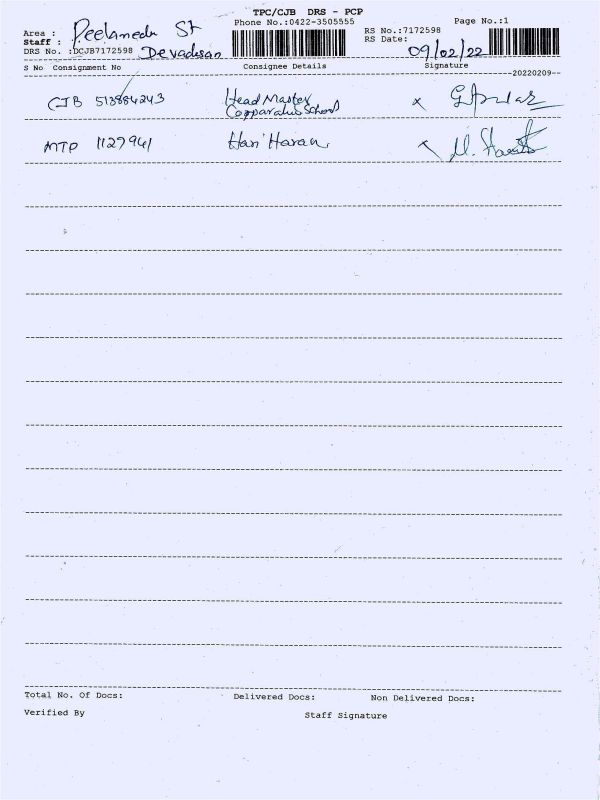 TPC/CJB DRS - PCP
Phone No.:0422-3505555 Page No.:1
Area : Peelamedu St
RS No.:7172598
Staff : Devadasan
RS Date: 09/02/22
DRS No. :DCJB7172598
S No Consignment No Consignee Details Signature
--20220209--
CJB 513884243 Head Master
School
x
MTP 1127941 Hari Haran
Total No. Of Docs: Delivered Docs: Non Delivered Docs:
Verified By Staff Signature